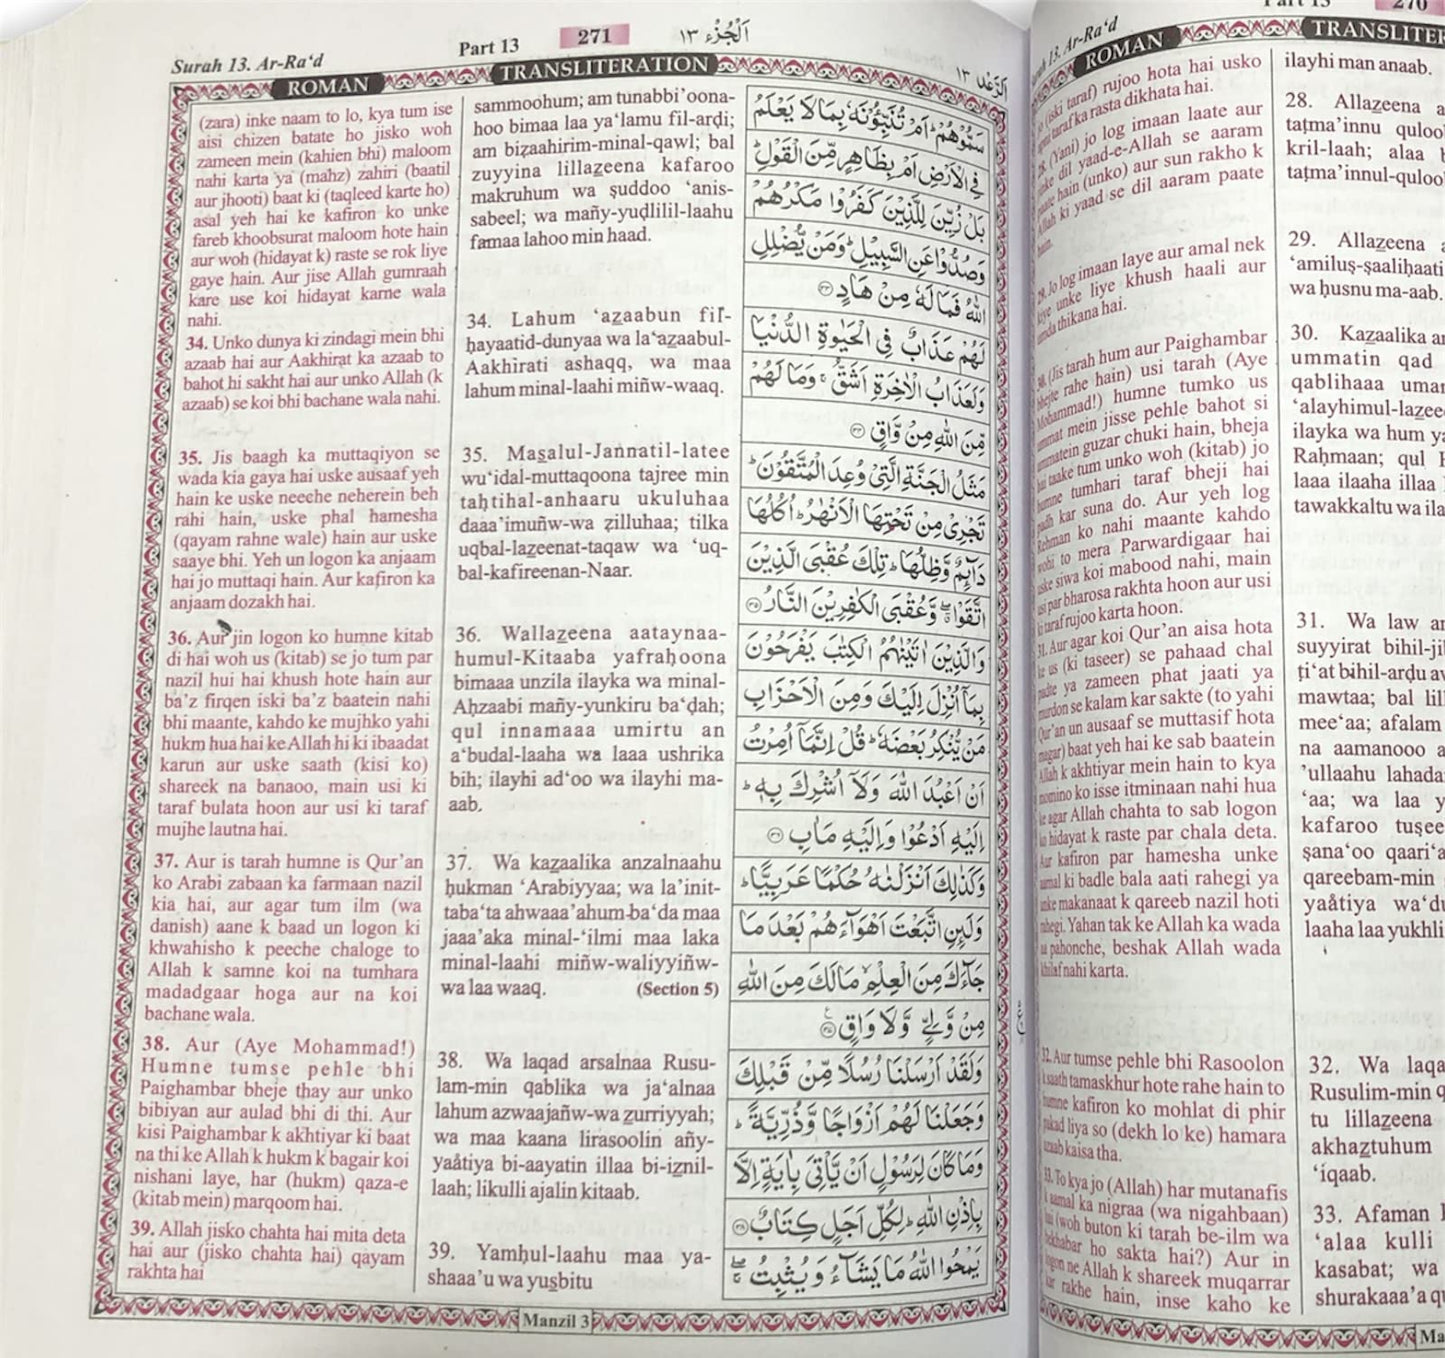 Surah 13. Ar-Ra‘d
Part 13
271
اَلْجُزْء ١٣
اَلرَّعْد ١٣
ROMAN
TRANSLITERATION
(zara) inke naam to lo, kya tum ise
aisi chizen batate ho jisko woh
zameen mein (kahien bhi) maloom
nahi karta ya (mahz) zahiri (baatil
aur jhooti) baat ki (taqleed karte ho)
asal yeh hai ke kafiron ko unke
fareb khoobsurat maloom hote hain
aur woh (hidayat k) raste se rok liye
gaye hain. Aur jise Allah gumraah
kare use koi hidayat karne wala
nahi.
34. Unko dunya ki zindagi mein bhi
azaab hai aur Aakhirat ka azaab to
bahot hi sakht hai aur unko Allah (k
azaab) se koi bhi bachane wala nahi.
35. Jis baagh ka muttaqiyon se
wada kia gaya hai uske ausaaf yeh
hain ke uske neeche neherein beh
rahi hain, uske phal hamesha
(qayam rahne wale) hain aur uske
saaye bhi. Yeh un logon ka anjaam
hai jo muttaqi hain. Aur kafiron ka
anjaam dozakh hai.
36. Aur jin logon ko humne kitab
di hai woh us (kitab) se jo tum par
nazil hui hai khush hote hain aur
ba’z firqen iski ba’z baatein nahi
bhi maante, kahdo ke mujhko yahi
hukm hua hai ke Allah hi ki ibaadat
karun aur uske saath (kisi ko)
shareek na banaoo, main usi ki
taraf bulata hoon aur usi ki taraf
mujhe lautna hai.
37. Aur is tarah humne is Qur’an
ko Arabi zabaan ka farmaan nazil
kia hai, aur agar tum ilm (wa
danish) aane k baad un logon ki
khwahisho k peeche chaloge to
Allah k samne koi na tumhara
madadgaar hoga aur na koi
bachane wala.
38. Aur (Aye Mohammad!)
Humne tumse pehle bhi
Paighambar bheje thay aur unko
bibiyan aur aulad bhi di thi. Aur
kisi Paighambar k akhtiyar ki baat
na thi ke Allah k hukm k bagair koi
nishani laye, har (hukm) qaza-e
(kitab mein) marqoom hai.
39. Allah jisko chahta hai mita deta
hai aur (jisko chahta hai) qayam
rakhta hai
sammoohum; am tunabbi’oona-
hoo bimaa laa ya‘lamu fil-arḍi;
am biẓaahirim-minal-qawl; bal
zuyyina lillaẕeena kafaroo
makruhum wa ṣuddoo ‘anis-
sabeel; wa mañy-yuḍlilil-laahu
famaa lahoo min haad.
34. Lahum ‘aẕaabun fil-
ḥayaatid-dunyaa wa la‘aẕaabul-
Aakhirati ashaqq, wa maa
lahum minal-laahi miñw-waaq.
35. Masalul-Jannatil-latee
wu‘idal-muttaqoona tajree min
taḥtihal-anhaaru ukuluhaa
daaa’imuñw-wa ẓilluhaa; tilka
uqbal-laẕeenat-taqaw wa ‘uq-
bal-kafireenan-Naar.
36. Wallaẕeena aataynaa-
humul-Kitaaba yafraḥoona
bimaaa unzila ilayka wa minal-
Aḥzaabi mañy-yunkiru ba‘ḍah;
qul innamaaa umirtu an
a‘budal-laaha wa laaa ushrika
bih; ilayhi ad‘oo wa ilayhi ma-
aab.
37. Wa kaẕaalika anzalnaahu
ḥukman ‘Arabiyyaa; wa la’init-
taba‘ta ahwaaa’ahum-ba‘da maa
jaaa’aka minal-‘ilmi maa laka
minal-laahi miñw-waliyyiñw-
wa laa waaq. (Section 5)
38. Wa laqad arsalnaa Rusu-
lam-min qablika wa ja‘alnaa
lahum azwaajañw-wa ẕurriyyah;
wa maa kaana lirasoolin añy-
yaåtiya bi-aayatin illaa bi-iẕnil-
laah; likulli ajalin kitaab.
39. Yamḥul-laahu maa ya-
shaaa’u wa yusbitu
سَمُّوْهُمْ ؕ اَمْ تُنَبِّـُٔوْنَهٗ بِمَا لَا يَعْلَمُ
فِى الْاَرْضِ اَمْ بِظَاهِرٍ مِّنَ الْقَوْلِ ؕ
بَلْ زُيِّنَ لِلَّذِيْنَ كَفَرُوْا مَكْرُهُمْ
وَصُدُّوْا عَنِ السَّبِيْلِ ؕ وَمَنْ يُّضْلِلِ
اللّٰهُ فَمَا لَهٗ مِنْ هَادٍ ۝٣٣
لَهُمْ عَذَابٌ فِى الْحَيٰوةِ الدُّنْيَا
وَلَعَذَابُ الْاٰخِرَةِ اَشَقُّ ۚ وَمَا لَهُمْ
مِّنَ اللّٰهِ مِنْ وَّاقٍ ۝٣٤
مَثَلُ الْجَنَّةِ الَّتِىْ وُعِدَ الْمُتَّقُوْنَ ؕ
تَجْرِىْ مِنْ تَحْتِهَا الْاَنْهٰرُ ؕ اُكُلُهَا
دَآئِمٌ وَّظِلُّهَا ؕ تِلْكَ عُقْبَى الَّذِيْنَ
اتَّقَوْا ۖ وَّعُقْبَى الْكٰفِرِيْنَ النَّارُ ۝٣٥
وَالَّذِيْنَ اٰتَيْنٰهُمُ الْكِتٰبَ يَفْرَحُوْنَ
بِمَآ اُنْزِلَ اِلَيْكَ وَمِنَ الْاَحْزَابِ
مَنْ يُّنْكِرُ بَعْضَهٗ ؕ قُلْ اِنَّمَآ اُمِرْتُ
اَنْ اَعْبُدَ اللّٰهَ وَلَآ اُشْرِكَ بِهٖ ؕ
اِلَيْهِ اَدْعُوْا وَاِلَيْهِ مَاٰبِ ۝٣٦
وَكَذٰلِكَ اَنْزَلْنٰهُ حُكْمًا عَرَبِيًّا ؕ
وَلَئِنِ اتَّبَعْتَ اَهْوَآءَهُمْ بَعْدَ مَا
جَآءَكَ مِنَ الْعِلْمِ ۙ مَا لَكَ مِنَ اللّٰهِ
مِنْ وَّلِىٍّ وَّلَا وَاقٍ ۝٣٧
وَلَقَدْ اَرْسَلْنَا رُسُلًا مِّنْ قَبْلِكَ
وَجَعَلْنَا لَهُمْ اَزْوَاجًا وَّذُرِّيَّةً ؕ
وَمَا كَانَ لِرَسُوْلٍ اَنْ يَّاْتِىَ بِاٰيَةٍ اِلَّا
بِاِذْنِ اللّٰهِ ؕ لِكُلِّ اَجَلٍ كِتَابٌ ۝٣٨
يَمْحُوا اللّٰهُ مَا يَشَآءُ وَيُثْبِتُ ۖ
Manzil 3
Part 13
270
13. Ar-Ra‘d
ROMAN
(iski taraf) rujoo hota hai usko
taraf ka rasta dikhata hai.
28. (Yani) jo log imaan laate aur
dil yaad-e-Allah se aaram
paate hain (unko) aur sun rakho k
Allah ki yaad se dil aaram paate
hain.
29. Jo log imaan laye aur amal nek
kiye unke liye khush haali aur
umda thikana hai.
(Jis tarah hum aur Paighambar
bhejte rahe hain) usi tarah (Aye
Mohammad!) humne tumko us
ummat mein jisse pehle bahot si
ummatein guzar chuki hain, bheja
hai taake tum unko woh (kitab) jo
humne tumhari taraf bheji hai
padh kar suna do. Aur yeh log
Rehman ko nahi maante kahdo
wohi to mera Parwardigaar hai
uske siwa koi mabood nahi, main
usi par bharosa rakhta hoon aur usi
ki taraf rujoo karta hoon.
31. Aur agar koi Qur’an aisa hota
ke us (ki taseer) se pahaad chal
padte ya zameen phat jaati ya
murdon se kalam kar sakte (to yahi
Qur’an un ausaaf se muttasif hota
magar) baat yeh hai ke sab baatein
Allah k akhtiyar mein hain to kya
momino ko isse itminaan nahi hua
ke agar Allah chahta to sab logon
ko hidayat k raste par chala deta.
Aur kafiron par hamesha unke
aamal ki badle bala aati rahegi ya
unke makanaat k qareeb nazil hoti
rahegi. Yahan tak ke Allah ka wada
na pahonche, beshak Allah wada
khilaf nahi karta.
32. Aur tumse pehle bhi Rasoolon
k saath tamaskhur hote rahe hain to
humne kafiron ko mohlat di phir
pakad liya so (dekh lo ke) hamara
azaab kaisa tha.
33. To kya jo (Allah) har mutanafis
k aamal ka nigraa (wa nigahbaan)
hai (woh buton ki tarah be-ilm wa
bekhabar ho sakta hai?) Aur in
logon ne Allah k shareek muqarrar
kar rakhe hain, inse kaho ke
ilayhi man anaab.
28. Allaẕeena
taṭma’innu
kril-laah; alaa
taṭma’innul-
29. Allaẕeena
‘amiluṣ-ṣaaliḥaati
wa ḥusnu ma-aab.
30. Kaẕaalika
ummatin qad
qablihaaa
‘alayhimul-
ilayka wa hum
Raḥmaan; qul
laaa ilaaha illaa
tawakkaltu wa
31. Wa law
suyyirat
ṭi‘at bihil-arḍu
mawtaa; bal
mee‘aa; afalam
na aamanooo
’ullaahu
‘aa; wa laa
kafaroo
ṣana‘oo
qareebam-min
yaåtiya
laaha laa
32. Wa
Rusulim-min
tu lillaẕeena
akhaẕtuhum
‘iqaab.
33. Afaman
‘alaa kulli
kasabat; wa
shurakaaa’a